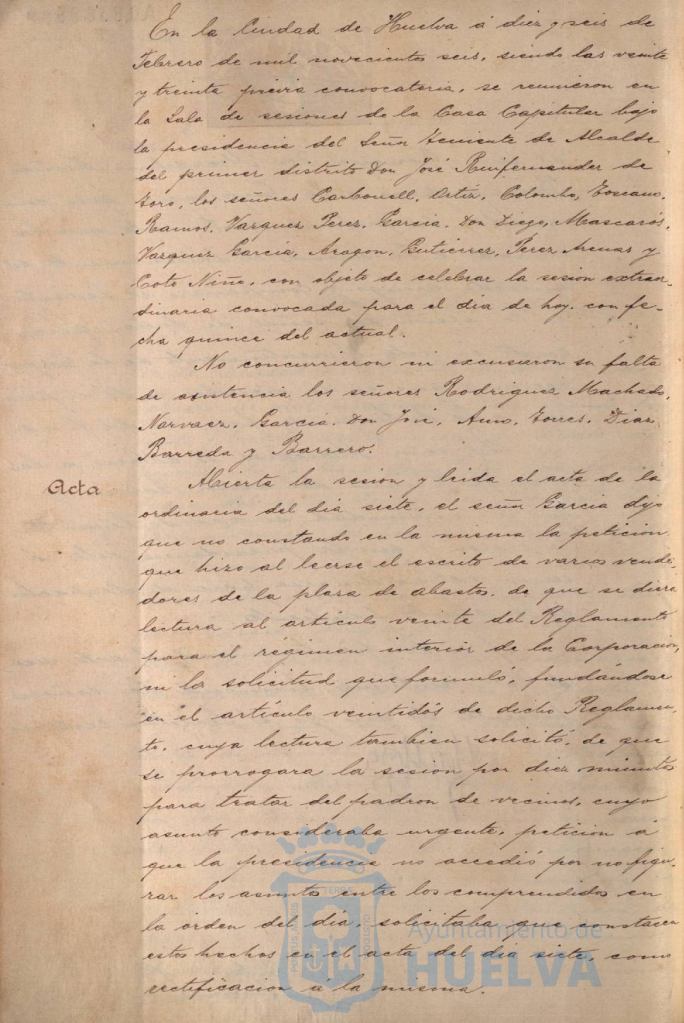 En la Ciudad de Huelva á diez y seis de
Febrero de mil novecientos seis, siendo las veinte
y treinta previa convocatoria, se reunieron en
la Sala de sesiones de la Casa Capitular bajo
la presidencia del Señor Teniente de Alcalde
del primer distrito Don José Ruifernandez de
Toro, los señores Carbonell, Ortiz, Colombo, Toscano,
Ramos, Vazquez Perez, Garcia, Don Diego, Mascarós,
Vazquez Garcia, Aragon, Gutierrez, Perez Arenas y
Coto Niño, con objeto de celebrar la sesion extraor-
dinaria convocada para el dia de hoy, con fe-
cha quince del actual.
No concurrieron ni excusaron su falta
de asistencia los señores Rodriguez Machado,
Narvaez, Garcia, Don José, Torres, Diaz,
Barreda y Barrero.
Acta
Abierta la sesion y leida el acta de la
ordinaria del dia siete, el señor Garcia dijo
que no constando en la misma la peticion
que hizo al leerse el escrito de varios vende-
dores de la plaza de abastos, de que se diera
lectura al artículo veinte del Reglamento
para el régimen interior de la Corporación,
ni la solicitud que formuló, fundándose
en el artículo veintidós de dicho Reglamen-
to, cuya lectura tambien solicitó, de que
se prorrogara la sesion por diez minutos
para tratar del padron de vecinos, cuyo
asunto consideraba urgente, peticion á
que la presidencia no accedió por no figu-
rar los asuntos entre los comprendidos en
la orden del dia, solicitaba que constasen
estos hechos en el acta del dia siete, como
rectificacion á la misma.
Ayuntamiento de
HUELVA